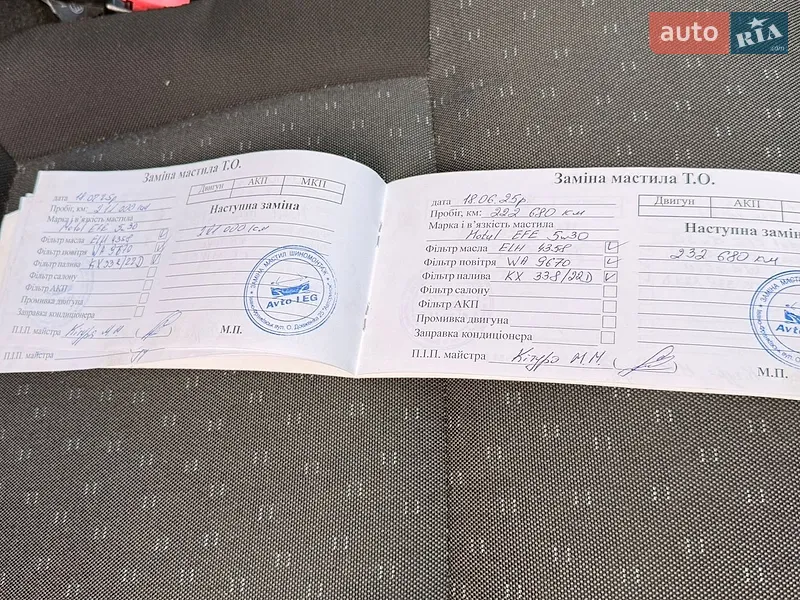 auto RIA .com
Заміна мастила Т.О.
Двигун АКП МКП
дата
Пробіг, км:
Марка і в'язкість мастила
Motul 5x30
Наступна заміна
Фільтр масла ELH 4358
Фільтр повітря WA 9670
Фільтр палива KX 338/22D
Фільтр салону
Фільтр АКП
Промивка двигуна
Заправка кондиціонера
П.І.П. майстра Кітура М.М.
М.П.
ЗАМІНА МАСТИЛ ШИНОМОНТАЖ
Avto-LEG
П.І.П. майстра
Заміна мастила Т.О.
Двигун АКП
дата 18.06.25р.
Пробіг, км: 222 680 км
Марка і в'язкість мастила
Motul EFE 5x30
Наступна замін
232 680 км
Фільтр масла ELH 4358
Фільтр повітря WA 9670
Фільтр палива KX 338/22D
Фільтр салону
Фільтр АКП
Промивка двигуна
Заправка кондиціонера
П.І.П. майстра Кітура М.М.
М.П.